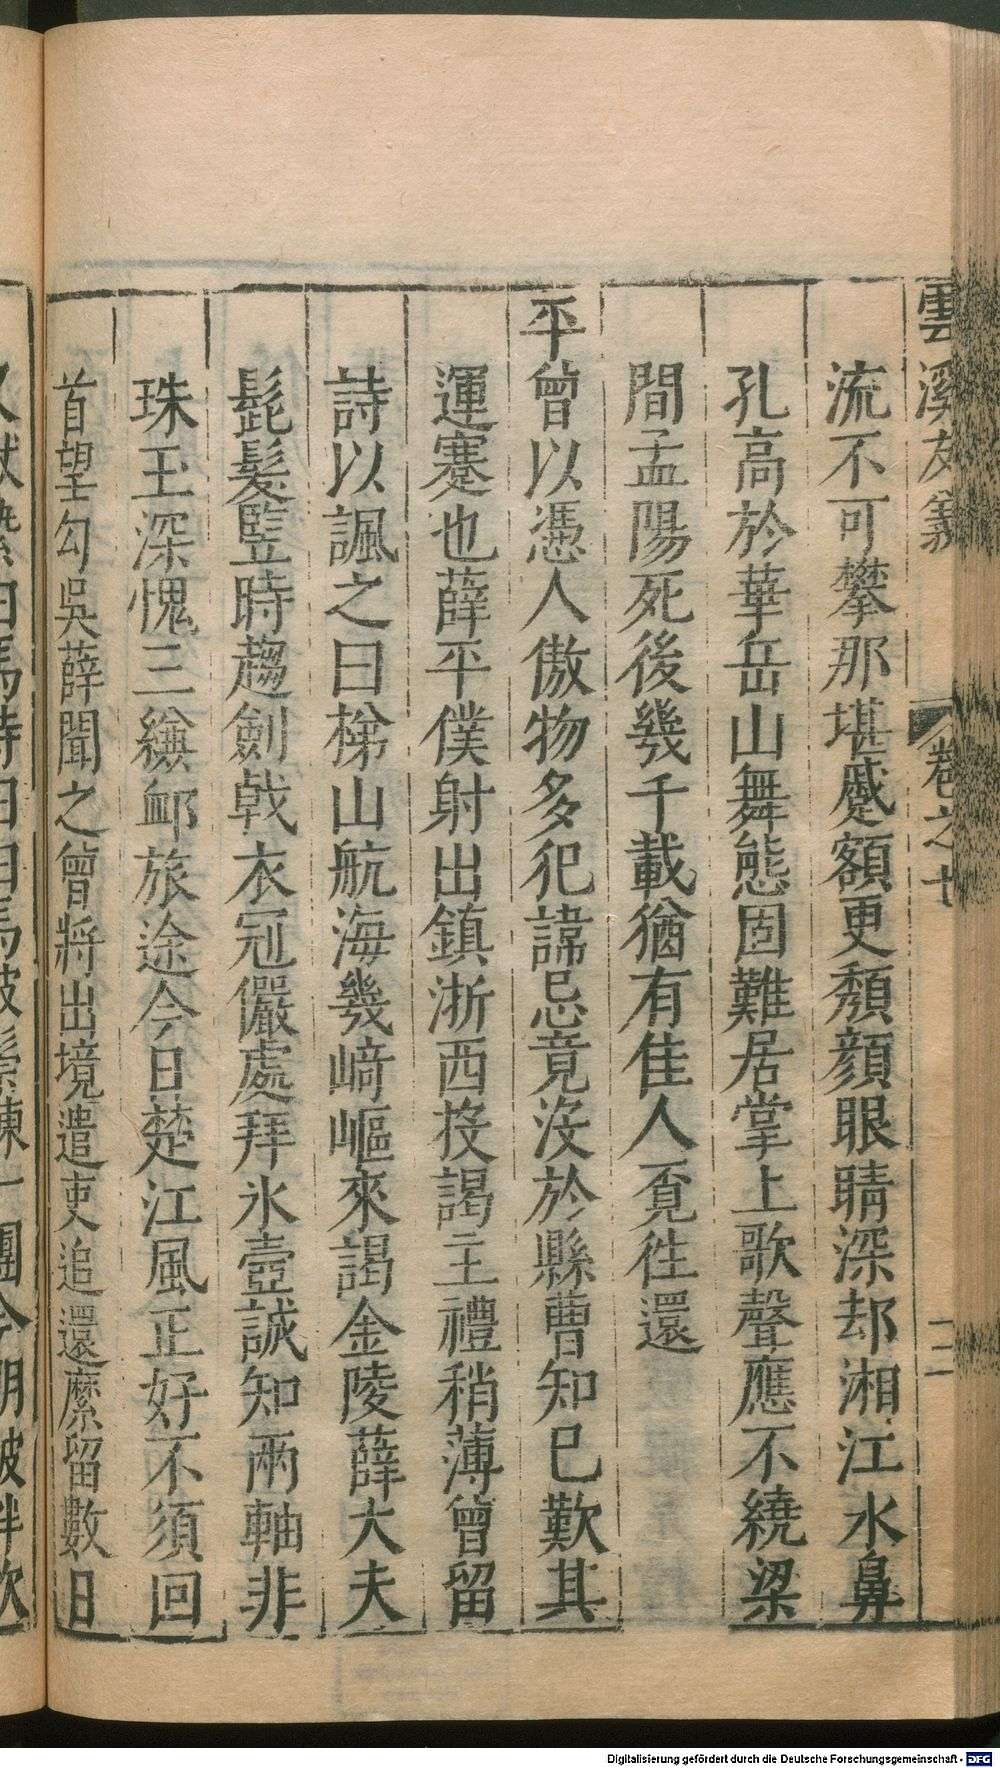 雲溪友議 卷之七 二
流不可攀那堪蹙額更頽顔眼睛深却湘江水鼻
孔高於華岳山舞態固難居掌上歌聲應不繞梁
間孟陽死後幾千載猶有佳人覔徃還
平曾以憑人傲物多犯諱忌竟沒於縣曹知己歎其
運蹇也薛平僕射出鎮浙西投謁主禮稍薄曾留
詩以諷之曰梯山航海幾崎嶇來謁金陵薛大夫
髭髮竪時趨劍戟衣冠儼處拜氷壺誠知兩軸非
珠玉深愧三縑衈旅途今日楚江風正好不須回
首望勾吳薛聞之曾將出境遣吏追還縻留數日